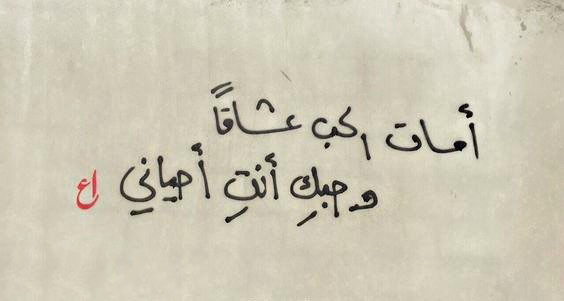 أمات الحب عشاقاً
وحبكِ أنتِ أحياني
اع